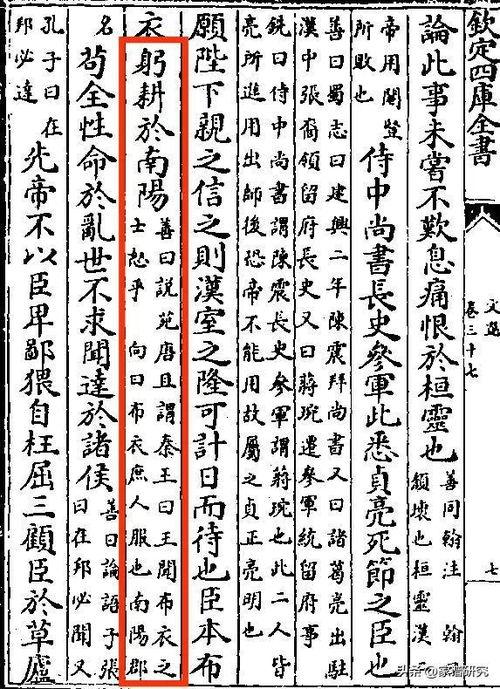 欽定四庫全書
文選
卷三十七
七
論此事未嘗不歎息痛恨於桓靈也
善同翰注 翰
頹壞也桓靈漢
帝用閹豎
所敗也
侍中尚書長史參軍此悉貞亮死節之臣也
善曰蜀志曰建興二年陳震拜尚書又曰諸葛亮出駐
漢中張裔領留府長史又曰蔣琬遷參軍統留府事
銑曰侍中尚書謂陳震長史參軍謂蔣琬也此二人皆
亮所進用出師後恐帝不能用故屬之貞正亮明也
願陛下親之信之則漢室之隆可計日而待也臣本布
衣躬耕於南陽
善曰說苑唐且謂秦王曰王聞布衣之
士怒乎 向曰布衣庶人服也南陽郡
名
苟全性命於亂世不求聞達於諸侯
善曰論語子張
曰在邦必聞又
孔子曰在
邦必達
先帝不以臣卑鄙猥自枉屈三顧臣於草廬
头条 @家谱研究